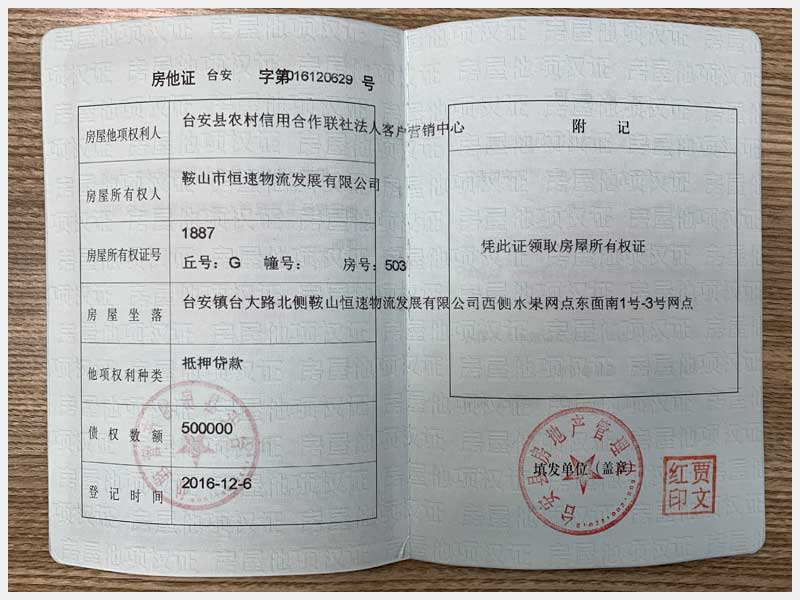 房他证 台安 字第016120629 号
房屋他项权利人 台安县农村信用合作联社法人客户营销中心
房屋所有权人 鞍山市恒速物流发展有限公司
房屋所有权证号 1887
丘号：G 幢号： 房号：503
房屋坐落 台安镇台大路北侧鞍山恒速物流发展有限公司西侧水果网点东面南1号-3号网点
他项权利种类 抵押贷款
债权数额 500000
登记时间 2016-12-6
附 记
凭此证领取房屋所有权证
台安县房地产管理
填发单位（盖章）
贾文红印